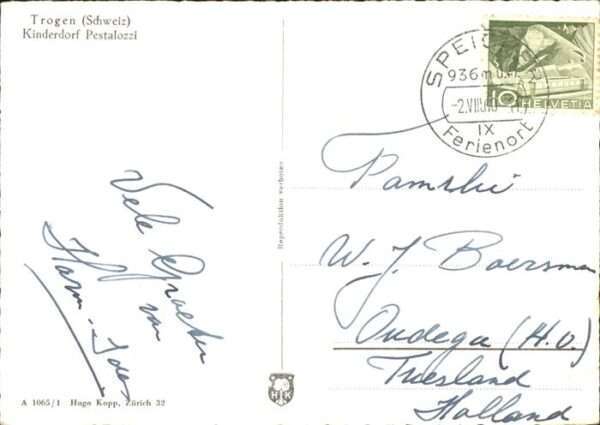 Trogen (Schweiz)
Kinderdorf Pestalozzi
SPEICHER
936m ü. M.
-2.VIII.
IX
Ferienort
10 HELVETIA
Vele Groeten
van
Harm.
Reproduktion verboten
W. J. Boersma
Oudega (H.O.)
Friesland
Holland
A 1065/1 Hugo Kopp, Zürich 32
H K